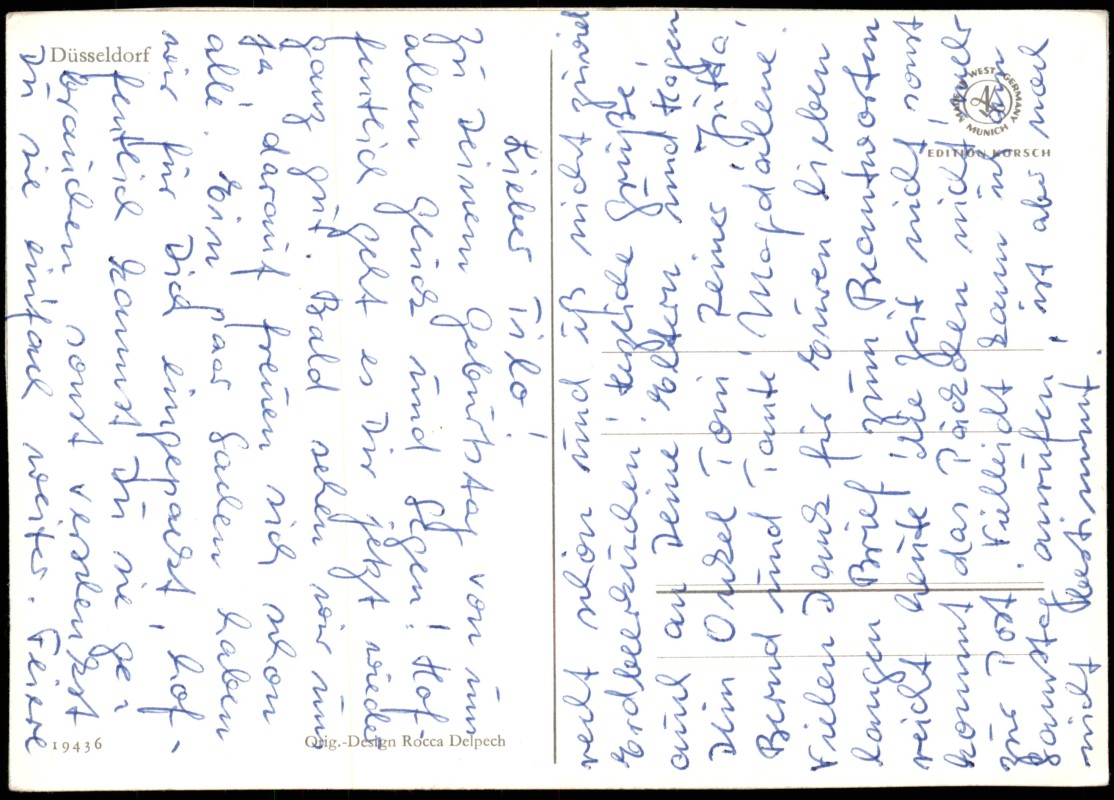 Düsseldorf
Lieber Tilo!
Zu Deinem Geburtstag von uns
allen Glück und Segen! Hof-
fentlich geht es Dir jetzt wieder
ganz gut. Bald sehen wir uns
ja darauf freuen sich schon
alle. Ein paar Sachen haben
wir für Dich eingepackt, hof-
fentlich kannst Du sie ge-
brauchen sonst verschenkst
Du sie einfach weiter. Feiere
recht schön und iß nicht zuviel
Erdbeerkuchen!
auch an Deine Eltern und
Dein Onkel Toni Deine Jutta!
Bernd und Tante Magdalene!
Vielen Dank für Euren lieben
langen Brief zum Beantworten
reicht heute die Zeit nicht, sonst
kommt das Päckchen nicht mehr
zur Post. Vielleicht kann ich am
Samstag anrufen, ist aber noch
nicht bestimmt.
19436
Orig.-Design Rocca Delpech
MADE IN WEST-GERMANY
MUNICH
EDITION KORSCH